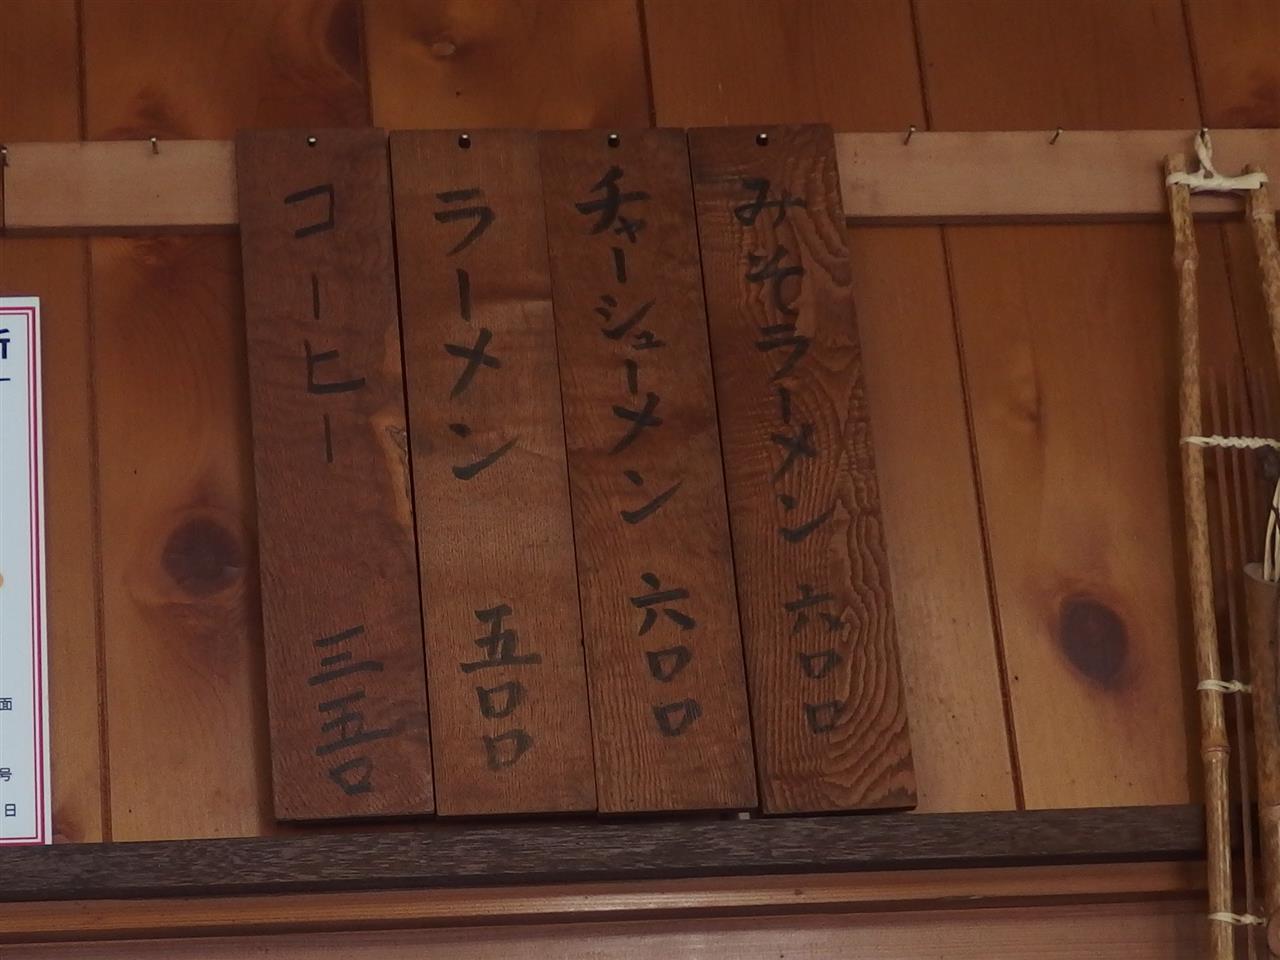 みそラーメン 六〇〇
チャーシューメン 六〇〇
ラーメン 五〇〇
コーヒー 三五〇
面
号
日